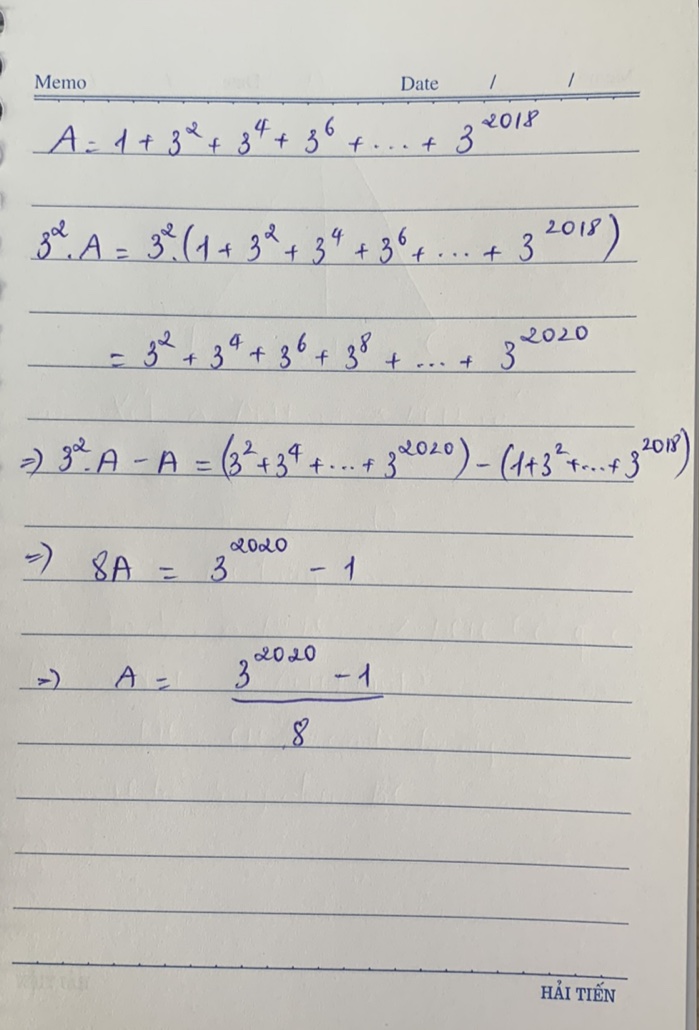 Memo Date / /
A = 1 + 3² + 3⁴ + 3⁶ + ... + 3²⁰¹⁸
3².A = 3².(1 + 3² + 3⁴ + 3⁶ + ... + 3²⁰¹⁸)
= 3² + 3⁴ + 3⁶ + 3⁸ + ... + 3²⁰²⁰
=> 3².A - A = (3² + 3⁴ + ... + 3²⁰²⁰) - (1 + 3² + ... + 3²⁰¹⁸)
=> 8A = 3²⁰²⁰ - 1
=> A = 3²⁰²⁰ - 1
8
HẢI TIẾN